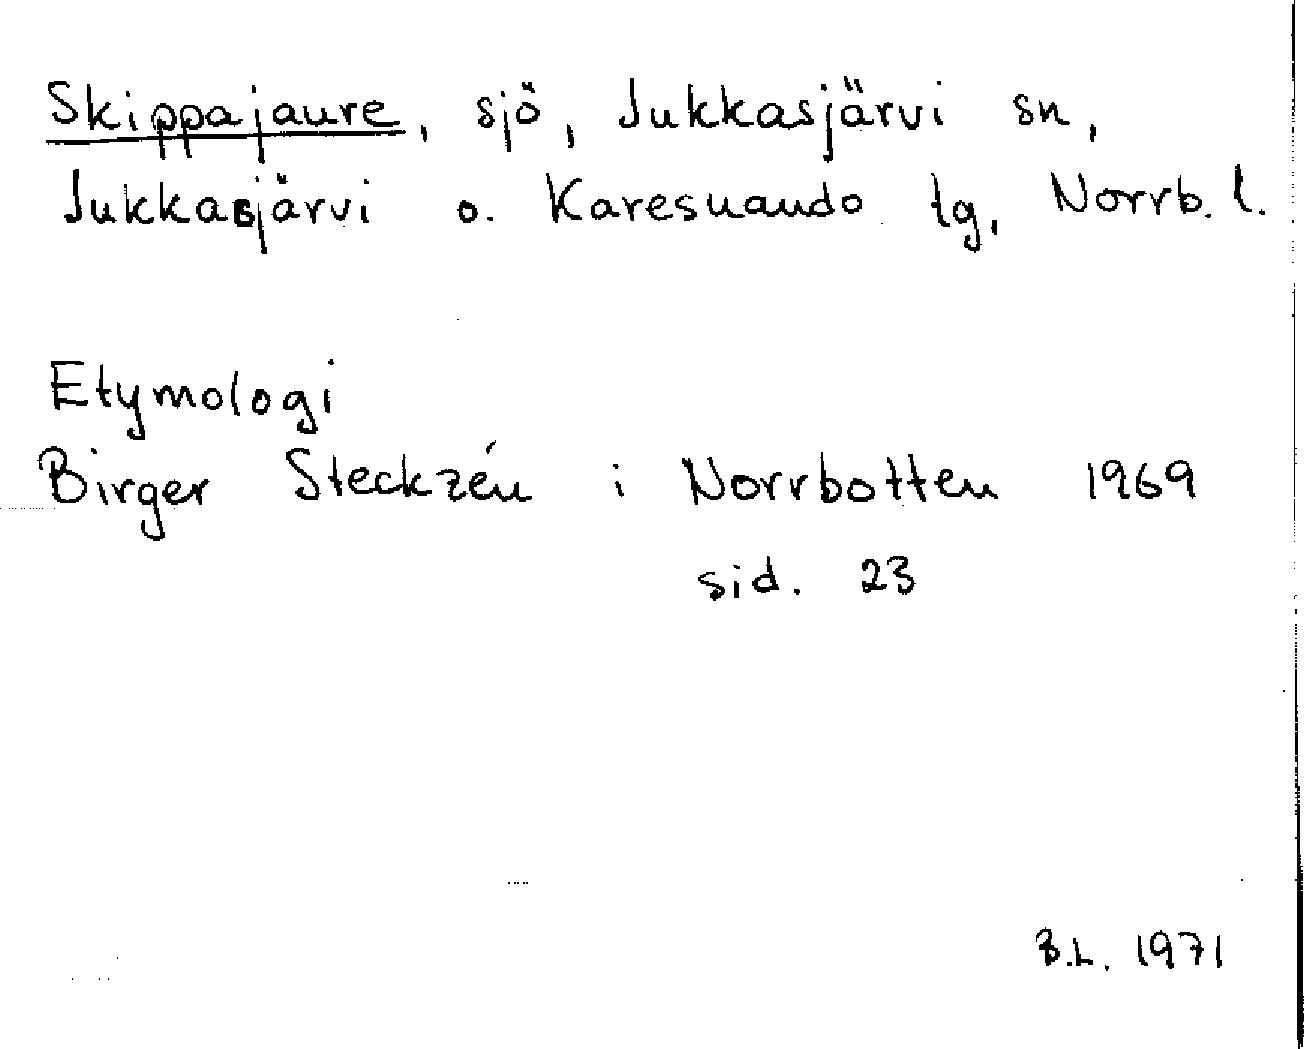 Skippajaure, sjö, Jukkasjärvi sn,
Jukkasjärvi o. Karesuando tg, Norrb. l.
Etymologi
Birger Steckzén i Norrbotten 1969
sid. 23
B.L. 1971